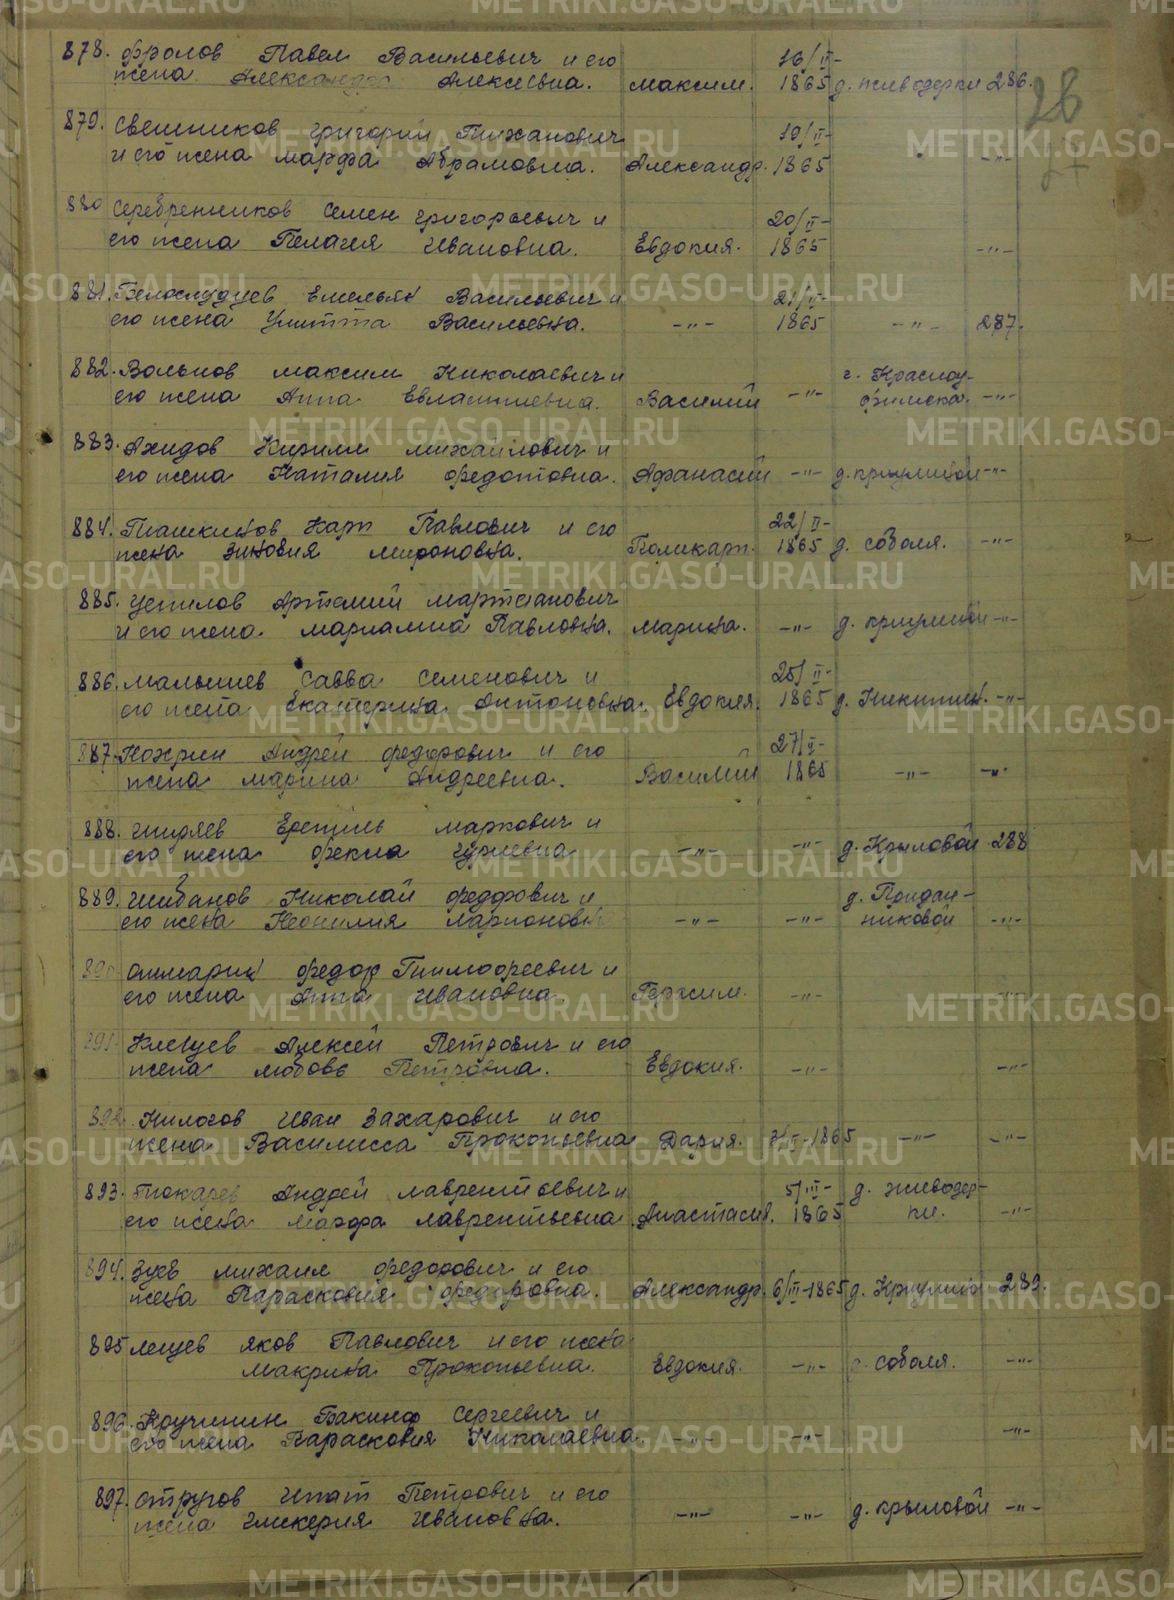 28
27
878. Фролов Павел Васильевич и его
жена Александра Алексеевна. Максим. 16/II-1865 д. Живодерки 286.
879. Свешников Григорий Тиханович
и его жена Марфа Абрамовна. Александр. 19/II-1865 " -"-
880 Серебренников Семен Григорьевич и
его жена Пелагия Ивановна. Евдокия. 20/II-1865 -"-
881. Белослудцев Емельян Васильевич и
его жена Улитта Васильевна. -"- 21/II-1865 -"- 287.
882. Вольнов Максим Николаевич и г. Красноу-
его жена Анна Евлампиевна. Василий -"- фимска. -"-
883. Ахидов Кирилл Михайлович и
его жена Наталия Федотовна. Афанасий -"- д. Криулиной -"-
884. Плашкинов Карп Павлович и его 22/II-
жена Зиновия Мироновна. Поликарп. 1865 д. Соболя. -"-
885. Устилов Артемий Мартемианович
и его жена Мариамна Павловна. Марина. -"- д. Криулиной -"-
886. Малышев Савва Семенович и 25/II-
его жена Екатерина Антоновна. Евдокия. 1865 д. -"-
887. Кохрин Андрей Федорович и его 27/II-
жена Марина Андреевна. Василий 1865 -"- -"-
888. Ширяев Еремий Маркович и
его жена Фекла Гуриевна -"- -"- д. Крыловой 288
889. Шибанов Николай Федорович и д. Придан-
его жена Неонилия Ларионовн -"- -"- никовой -"-
890 Ошмарин Федор Тимофеевич и
его жена Анна Ивановна. Герасим. -"- -"-
891. Клевцев Алексей Петрович и его
жена Любовь Петровна. Евдокия. -"- -"-
892. Нилогов Иван Захарович и его
жена Василисса Прокопьевна Дария. 1865 -"- -"-
893. Токарев Андрей Лаврентьевич и 5/III- д. Живодер-
его жена Марфа Лаврентьевна. Анастасия. 1865 ки. -"-
894. Зуев Михаил Федорович и его
жена Парасковия Федоровна. Александр. 6/III-1865 д. Криулино 289.
895 Лещев Яков Павлович и его жена
Макрина Прокопьевна. Евдокия. -"- д. Соболя. -"-
896. Кручинин Вакинф Сергеевич и
его жена Парасковия Николаевна. -"- -"- -"-
897. Стругов Ипат Петрович и его
жена Гликерия Ивановна. -"- -"- д. Крыловой -"-
METRIKI.GASO-URAL.RU